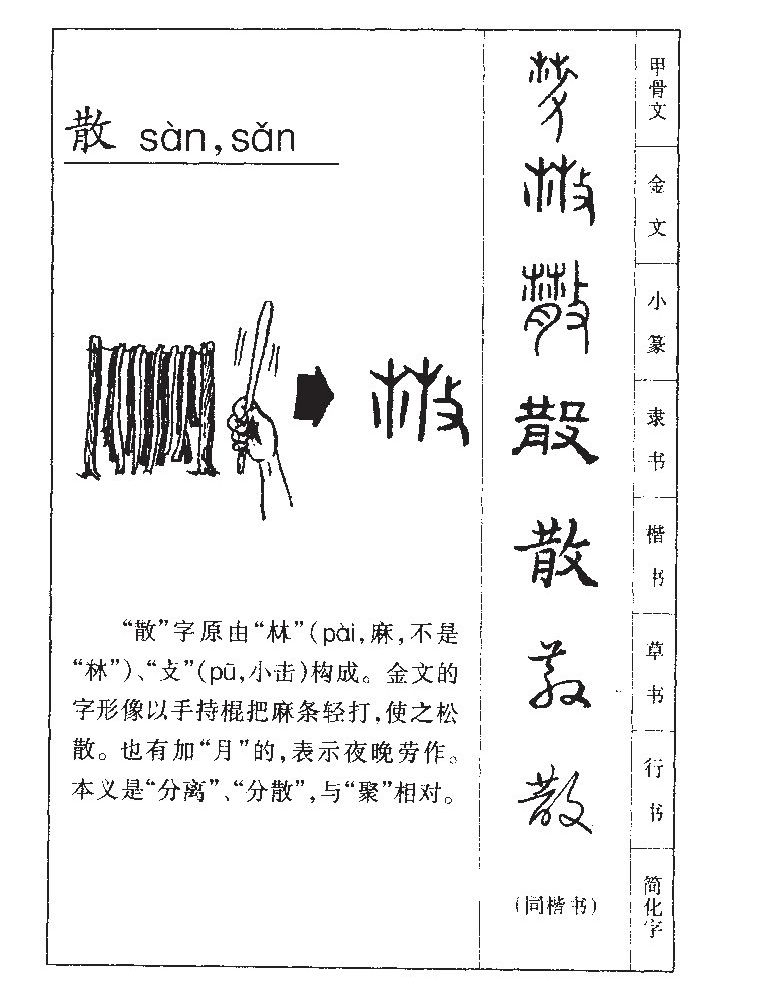 散 sàn,sǎn
“散”字原由“𣏟”(pài,麻,不是
“林”)、“攴”(pū,小击)构成。金文的
字形像以手持棍把麻条轻打,使之松
散。也有加“月”的,表示夜晚劳作。
本义是“分离”、“分散”,与“聚”相对。
甲骨文
金文
小篆
散 隶书
散 楷书
散 草书
散 行书
(同楷书) 简化字